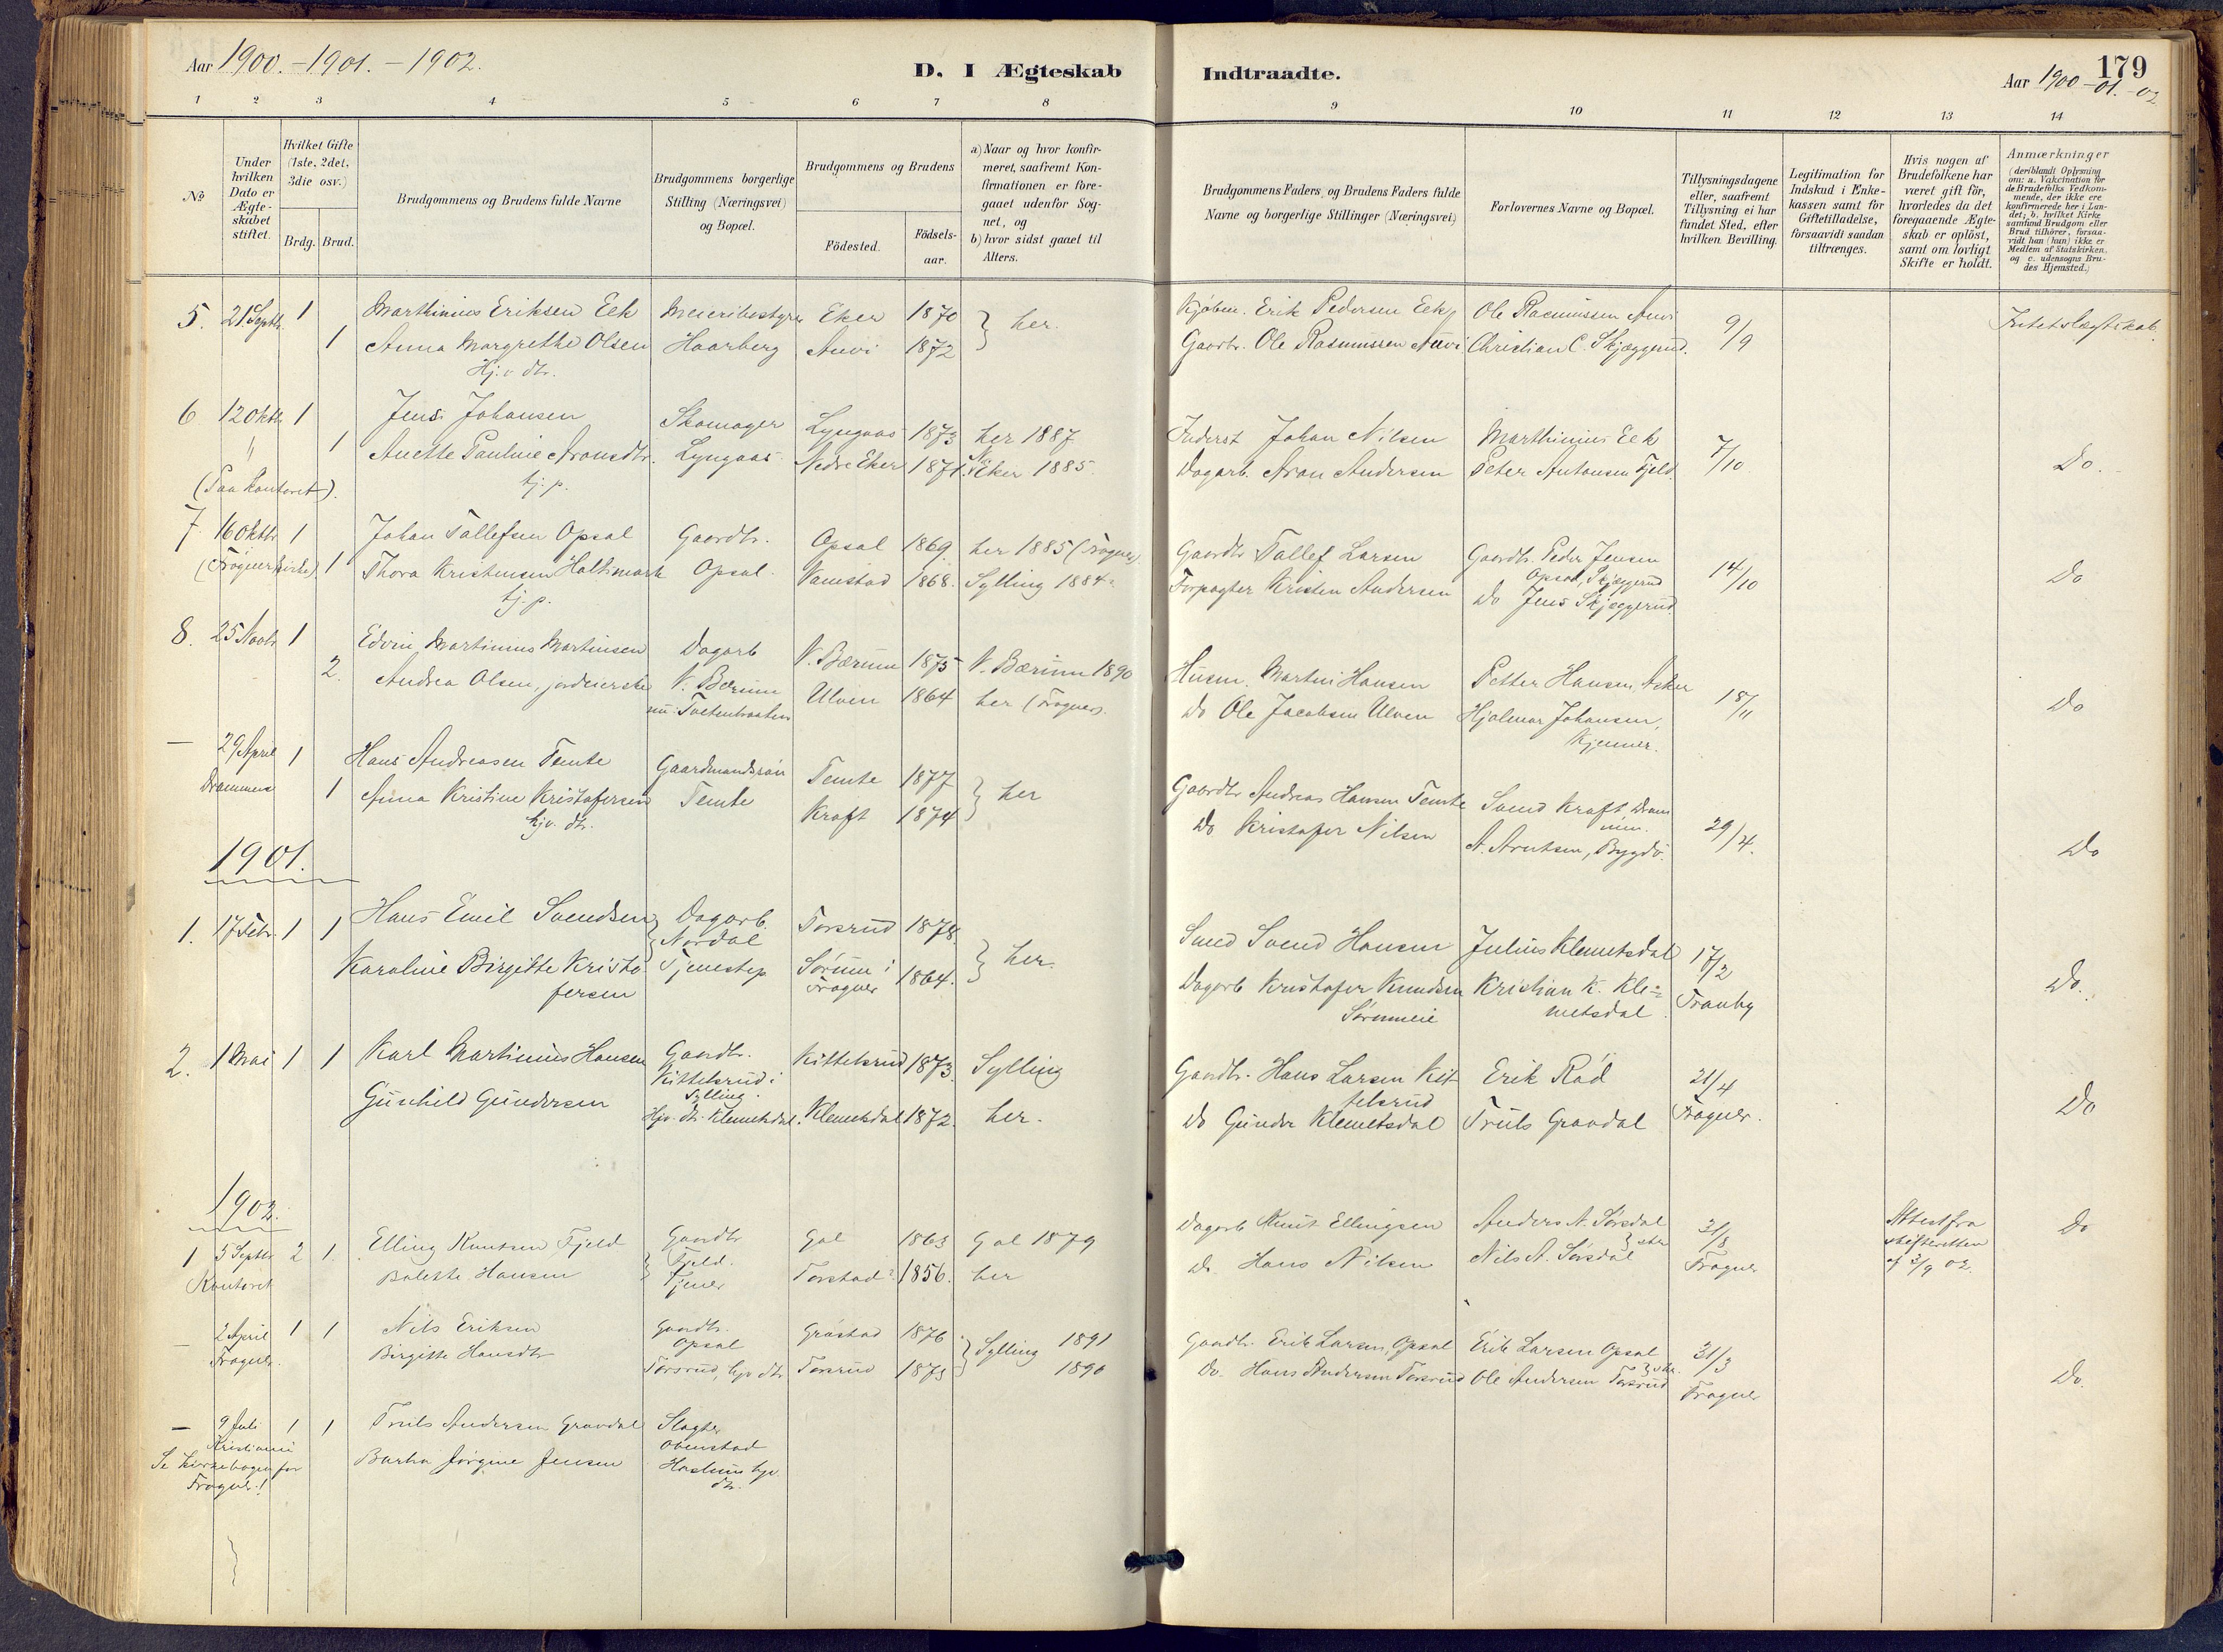 Aar 1900.-1901.-1902.
D. I Ægteskab
Indtraadte.
179
Aar 1900-01.-02
1 2 3 4 5 6 7 8 9 10 11 12 13 14
No
Under hvilken Dato er Ægteskabet stiftet.
Hvilket Gifte (1ste, 2det, 3die osv.)
Brdg. Brud.
Brudgommens og Brudens fulde Navne
Brudgommens borgerlige Stilling (Næringsvei) og Bopæl.
Brudgommens og Brudens
Födested.
Födsels-aar.
a) Naar og hvor konfirmeret, saafremt Konfirmationen er foregaaet udenfor Sognet, og
b) hvor sidst gaaet til Alters.
Brudgommens Faders og Brudens Faders fulde Navne og borgerlige Stillinger (Næringsvei)
Forlovernes Navne og Bopæl.
Tillysningsdagene eller, saafremt Tillysning ei har fundet Sted, efter hvilken Bevilling.
Legitimation for Indskud i Enkekassen samt for Giftetilladelse, forsaavidt saadan tiltrænges.
Hvis nogen af Brudefolkene har været gift för, hvorledes da det foregaaende Ægteskab er oplöst, samt om lovligt Skifte er holdt.
Anmærkninger (deriblandt Oplysning om: a. Vakcination for de Brudefolks Vedkommende, der ikke ere konfirmerede her i Landet; b. hvilket Kirkesamfund Brudgom eller Brud tilhörer, forsaavidt han (hun) ikke er Medlem af Statskirken, og c. udensogns Brudes Hjemsted.)
5. 21 Septb. 1 Marthinius Eriksen Eek Meieribestyrer Eker 1870 } her. Kjöbm. Erik Pedersen Eek Ole Rasmussen Auvi 9/9 Intet slægtskab.
1 Anna Margrethe Olsen Haarberg Auvi 1872 Gaardbr. Ole Rasmussen Auvi Christian C. Skjæggerud.
Hj. v. dtr.
6 12 Oktb. 1 Jens Johansen Skomager Lyngaas 1873 her 1887 Inderst Johan Nilsen Marthinius Eek 7/10 Do.
" 1 Anette Pauline Aronsdtr. Lyngaas Nedre Eker 1871. N. Eker 1885. Dagarb. Aron Andersen Peter Antonsen Fjeld.
(Paa Kontoret). tj. p.
7 16 Oktbr 1 Johan Tollefsen Opsal Gaardbr. Opsal 1869 her 1885 (Frogner) Gaardbr Tollef Larsen Gaardb. Peder Jensen Opsal, Skjæggerud 14/10 Do
(Frogner kirke) 1 Thora Kristensen Holtsmark Opsal. Vamestad 1868. Sylling 1884 Forpagter Kristen Andersen Do Jens Skjæggerud.
tj. p.
8. 25 Novbr 1 Edvin Martinius Martinsen Dagarb V. Bærum 1875 V. Bærum 1890 Husm. Martin Hansen Petter Hansen, Asker 18/11 Do
2. Andrea Olsen, jordeierske V. Bærum Ulven 1864 her (Frogner). Do Ole Jacobsen Ulven Hjalmar Johansen, Kjenner.
— 29 April 1 Hans Andreasen Temte Gaardmandssön Temte 1877 } her Gaardbr Andreas Hansen Temte Svend Kraft, Drammen. 29/4. Do
Drammen 1 Anna Kristine Kristofersen Temte Kraft 1874 Do Kristofer Nilsen A. Arntsen, Bygdö.
hjv. dtr.
1901.
1. 17 Febr. 1 1 Hans Emil Svendsen Dagarb. Nordal Torsrud 1878. } her. Smed Svend Hansen Julius Klemetsdal 17/2 Do.
Karoline Birgitte Kristofersen Tjenestep Sörum i Frogner 1864. Dagarb Kristofer Knudsen Sörumeie Kristian K. Klemetsdal Tranby
2. 1 Mai 1 1 Karl Martinius Hansen Gaardbr. Kittelsrud i Sylling. Kittelsrud 1873. Sylling Gaardbr. Hans Larsen Kittelsrud Erik Röd 21/4 Do
Gunhild Gundersen Hjv. dtr. Klemetsdal. Klemetsdal 1872. her. Do Gunder Klemetsdal Truls Gravdal Frogner.
1902.
1 5 Septb. 2 1. Elling Knutsen Fjeld Gaardbr Fjeld. Gol 1863 Gol 1879 Dagarb Knut Ellingsen Anders A. Sörsdal 31/8 Attest fra skifteretten af 2/9 02. Do
Kontoret Bolette Hansen Tjener Torstad 1856. her Do. Hans Nilsen Nils A. Sörsdal Frogner
— 2 April 1 1 Nils Eriksen Gaardbr. Opsal Gröstad 1876 } Sylling 1891 Gaardbr. Erik Larsen, Opsal Erik Larsen Opsal 31/3 Do.
Frogner. Birgitte Hansdtr Torsrud, hjv dtr Torsrud 1873 1890 Do. Hans Andersen Torsrud Ole Andersen Torsrud Frogner
— 9 Juli 1 1 Truls Andersen Gravdal Slagter Ovenstad
Kristiania
Se kirkebogen for Frogner! Jörgine Jensen hjv. dtr.